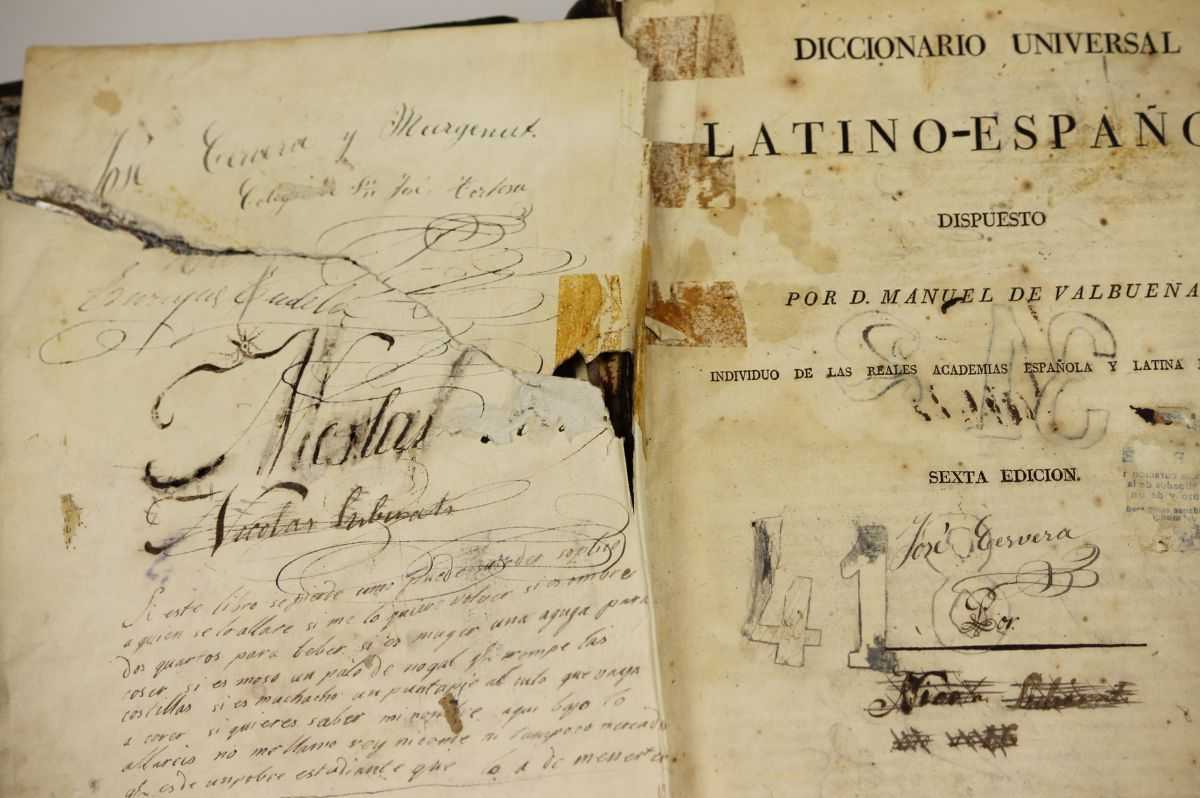 José Cervera y Margenat.
Colegio de Sn José Tortosa
Enrique
Nicolas
Nicolas Subirats
Si este libro se pierde como puede suceder
a quien se lo allare si me lo quiere volver si es ombre
dos quartos para beber, si es muger una aguja para
coser, si es moso un palo de nogal qe rompe las
costillas si es muchacho un puntapie al culo que vaya
a corer si quieres saber mi nombre aqui bajo lo
allareis no me llamo rey ni conte ni tampoco
qe es de un pobre estudiante que lo a de menester
DICCIONARIO UNIVERSAL
LATINO-ESPAÑO
DISPUESTO
POR D. MANUEL DE VALBUENA
INDIVIDUO DE LAS REALES ACADEMIAS ESPAÑOLA Y LATINA
SEXTA EDICION.
José Cervera
41
Por.